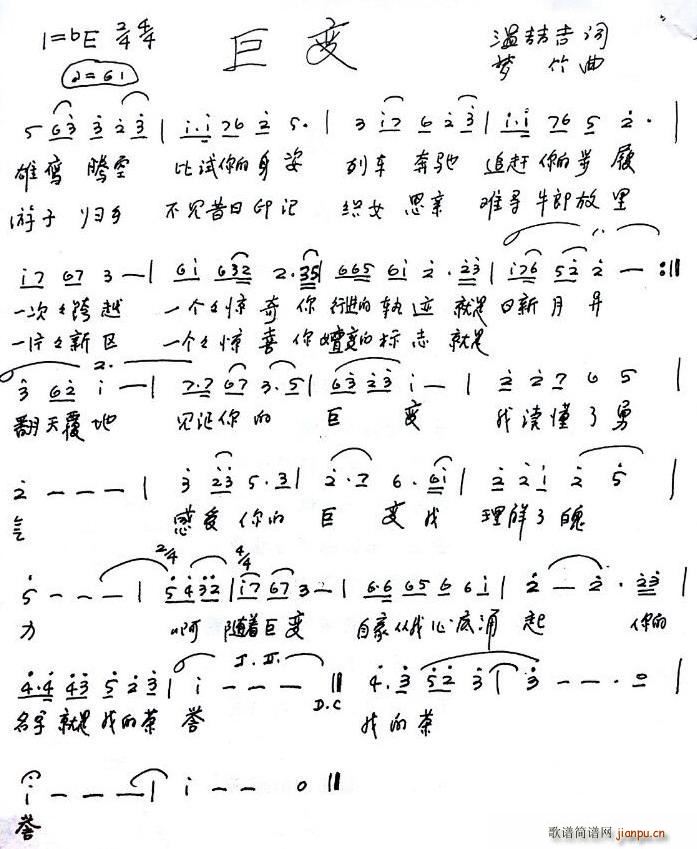 1=bE 2/4 4/4 巨变 温喆吉词
♩=61 梦竹曲
5 6 3 3 2 3 | 1·1 7 6 2 5· | 3 1 7 6 2 3 | 1·1 7 6 5 2· |
雄鹰 腾空 比试你的身姿 列车 奔驰 追赶你的步履
游子 归乡 不见昔日印记 织女 思亲 难寻牛郎故里
1 7 6 7 3 — | 6 1 6 3 2 2·3 5 | 6 6 5 6 1 2·2 3 | 1 7 6 5 2 2 — :||
一次次跨越 一个个惊奇 你 行进的轨迹 就是 日新月异
一片片新区 一个个惊喜 你 的标志 就是
2.
3 6 2 1 — | 7·7 6 7 3·5 | 6 3 2 3 1 — | 2 2 7 6 5 |
翻天覆地 见证你的 巨 变 我读懂了勇
2 — — — | 3 2 3 5·3 | 2·7 6·6 1 | 2 2 1 2 5 |
气 感受 你的 巨 变我 理解了魄
2/4 4/4
5 — — — | 5 4 3 2 | 1 7 6 7 3 — | 6·6 6 5 6 6 1 | 2 — 2·2 3 |
力 啊 随着巨变 自豪从我心底涌 起 你的
I. II.
4·4 4 3 5 2 3 | 1 — — — || 4·3 5 2 3 | 3 — — · 0 |
D.C
名字就是我的荣 誉 我的荣
1 — — — | 1 — — 0 ||
誉
歌谱简谱网 jianpu.cn